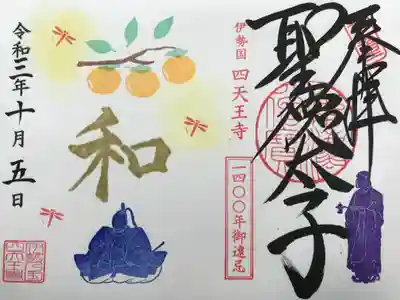 奉拝
聖徳太子
伊勢国 四天王寺
一四〇〇年御遠忌
和
令和三年十月五日